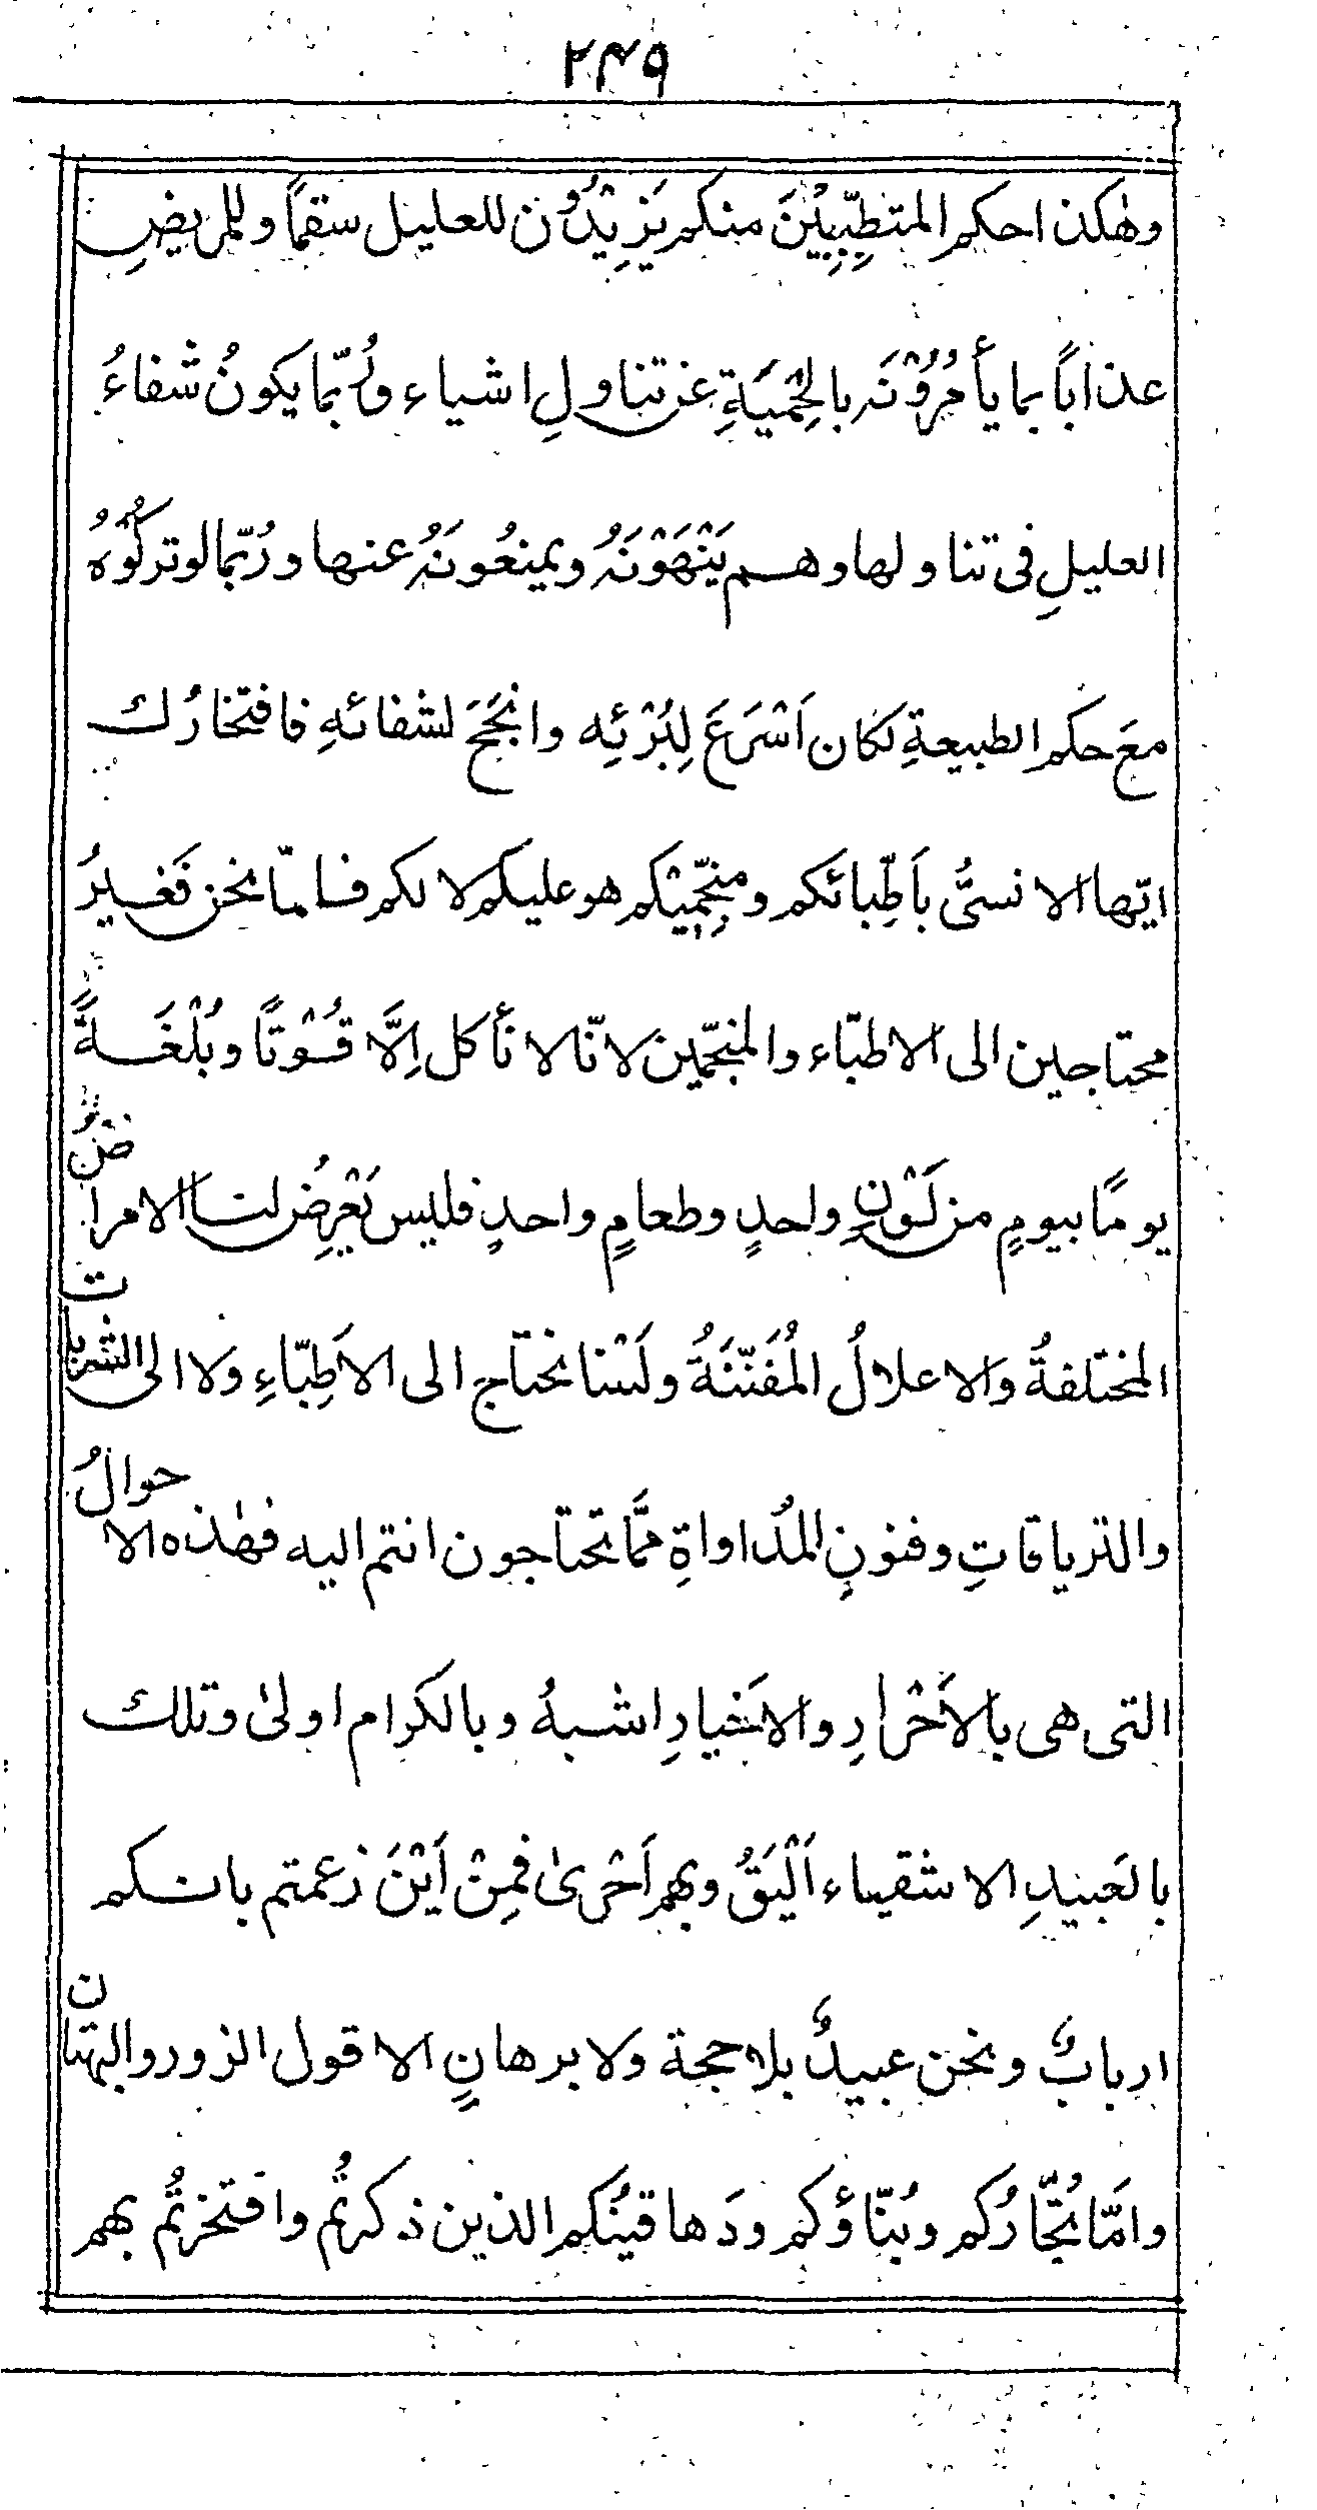 ۲۴۹
وهٰكذا حكم المتطبِّبِيْنَ منكم يَزِيْدُوْن للعليل سقمًا وللمريضِ
عذابًا بما يأمُرُوْنَه بالحِمْيَةِ عن تناولِ اشياء ورُبّما يكونُ شفاءُ
العليلِ فى تناولها وهم يَنْهَوْنَهُ ويمنعُونَهُ عنها ورُبّما لو تركُوْهُ
معَ حكم الطبيعةِ لكان اَسْرَعَ لِبُرْئِه وانجَحَ لشفائهِ فافتخارُك
ايّها الانسىُّ بَاَطِبّائكم ومنجِّمِيْكم هو عليكم لا لكم فامّا نحن فَغيرُ
محتاجين الى الاطبّاء والمنجّمين لانّا لا نأكل اِلَّا قُوْتًا وبُلْغَةً
يومًا بيومٍ من لَوْنٍ واحدٍ وطعامٍ واحدٍ فليس يَعْرِضُ لنا الامراضُ
المختلفةُ والاعلالُ المُفَنّنَةُ ولَسْنا نحتاج الى الاَطِبّاءِ ولا الى الشربات
والترياقاتِ وفنونِ المُداواةِ ممَّا تحتاجون انتم اليه فهٰذه الاحوالُ
التى هى بالاَحْرارِ والاَخيارِ اشبهُ وبالكرام اولىٰ وتلك
بالعَبيدِ الاشقياء اَلْيَقُ وبهم اَحْرىٰ فمِنْ اَيْنَ زعمتم بانكم
اربابٌ ونحن عبيدٌ بلا حجة ولا برهانٍ الا قول الزور والبهتان
وامَّا تُجّارُكم وبُنّاؤكم ودَهاقينُكم الذين ذكرتُم وافتخرتُم بهم